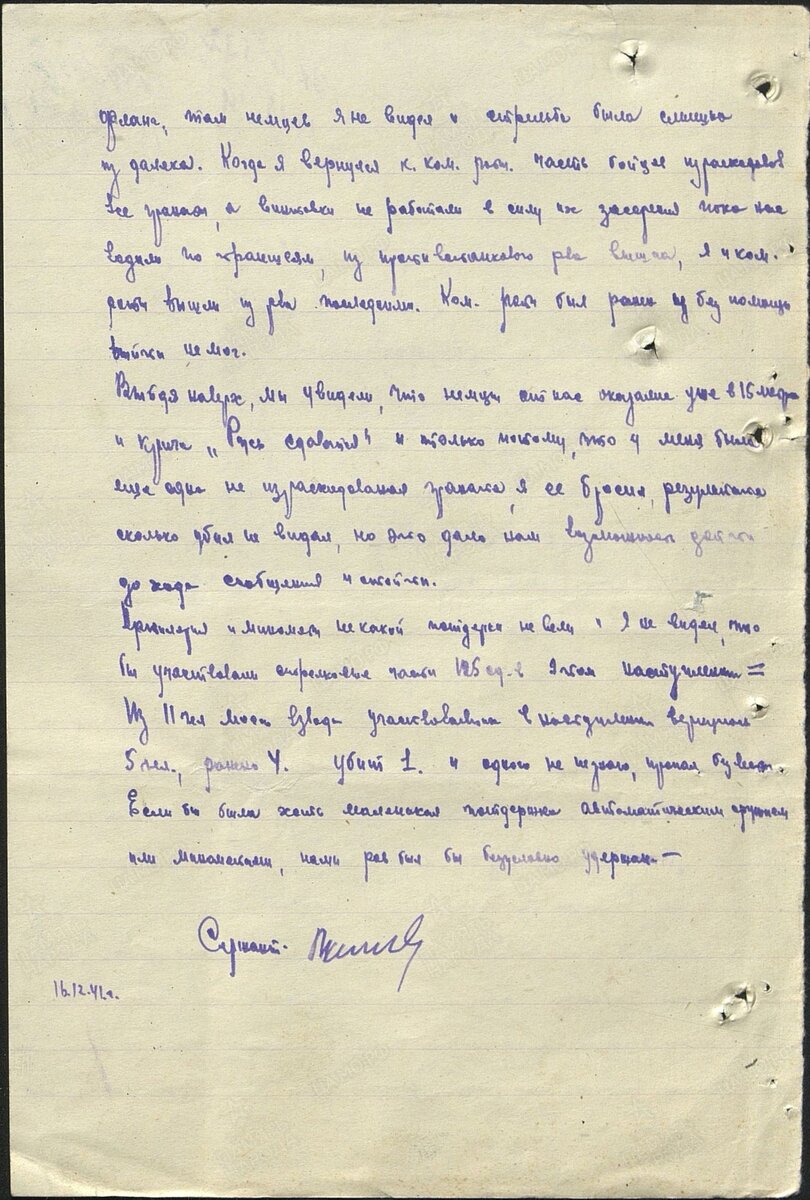 фланг, там немцев я не видел и стрельба была слышна
из далека. Когда я вернулся к ком. роты. часть бойцов израсходовав
все гранаты, а винтовки не работали в силу их засорения пока нас
водили по траншеям, из противотанкового рва вышла, я и ком.
роты вышли из рва последними. Ком. роты был ранен из без помощи
выйти не мог.
Выйдя наверх, мы увидели, что немцы от нас оказались уже в 15 метр
и крича „Русь сдавайся" и только потому, что у меня была
еще одна не израсходованая граната, я ее бросил, результата
сколько убил не видал, но это дало нам возможность дойти
до хода сообщения и отойти.
Артилерия и минометы не какой потдержки не вели и Я не видел, что
бы участвовали стрелковые части 125 сд. в этом наступлении =
Из 11 чел моего взвода участвовавших в наступлении вернулось
5 чел., ранено 4. убит 1. и одного не известно, пропал
Если бы была хоть маленькая потдержка автоматическим оружием
или минометами, нами ров был бы безусловно удержан. —
Сержант.
16.12.42г.